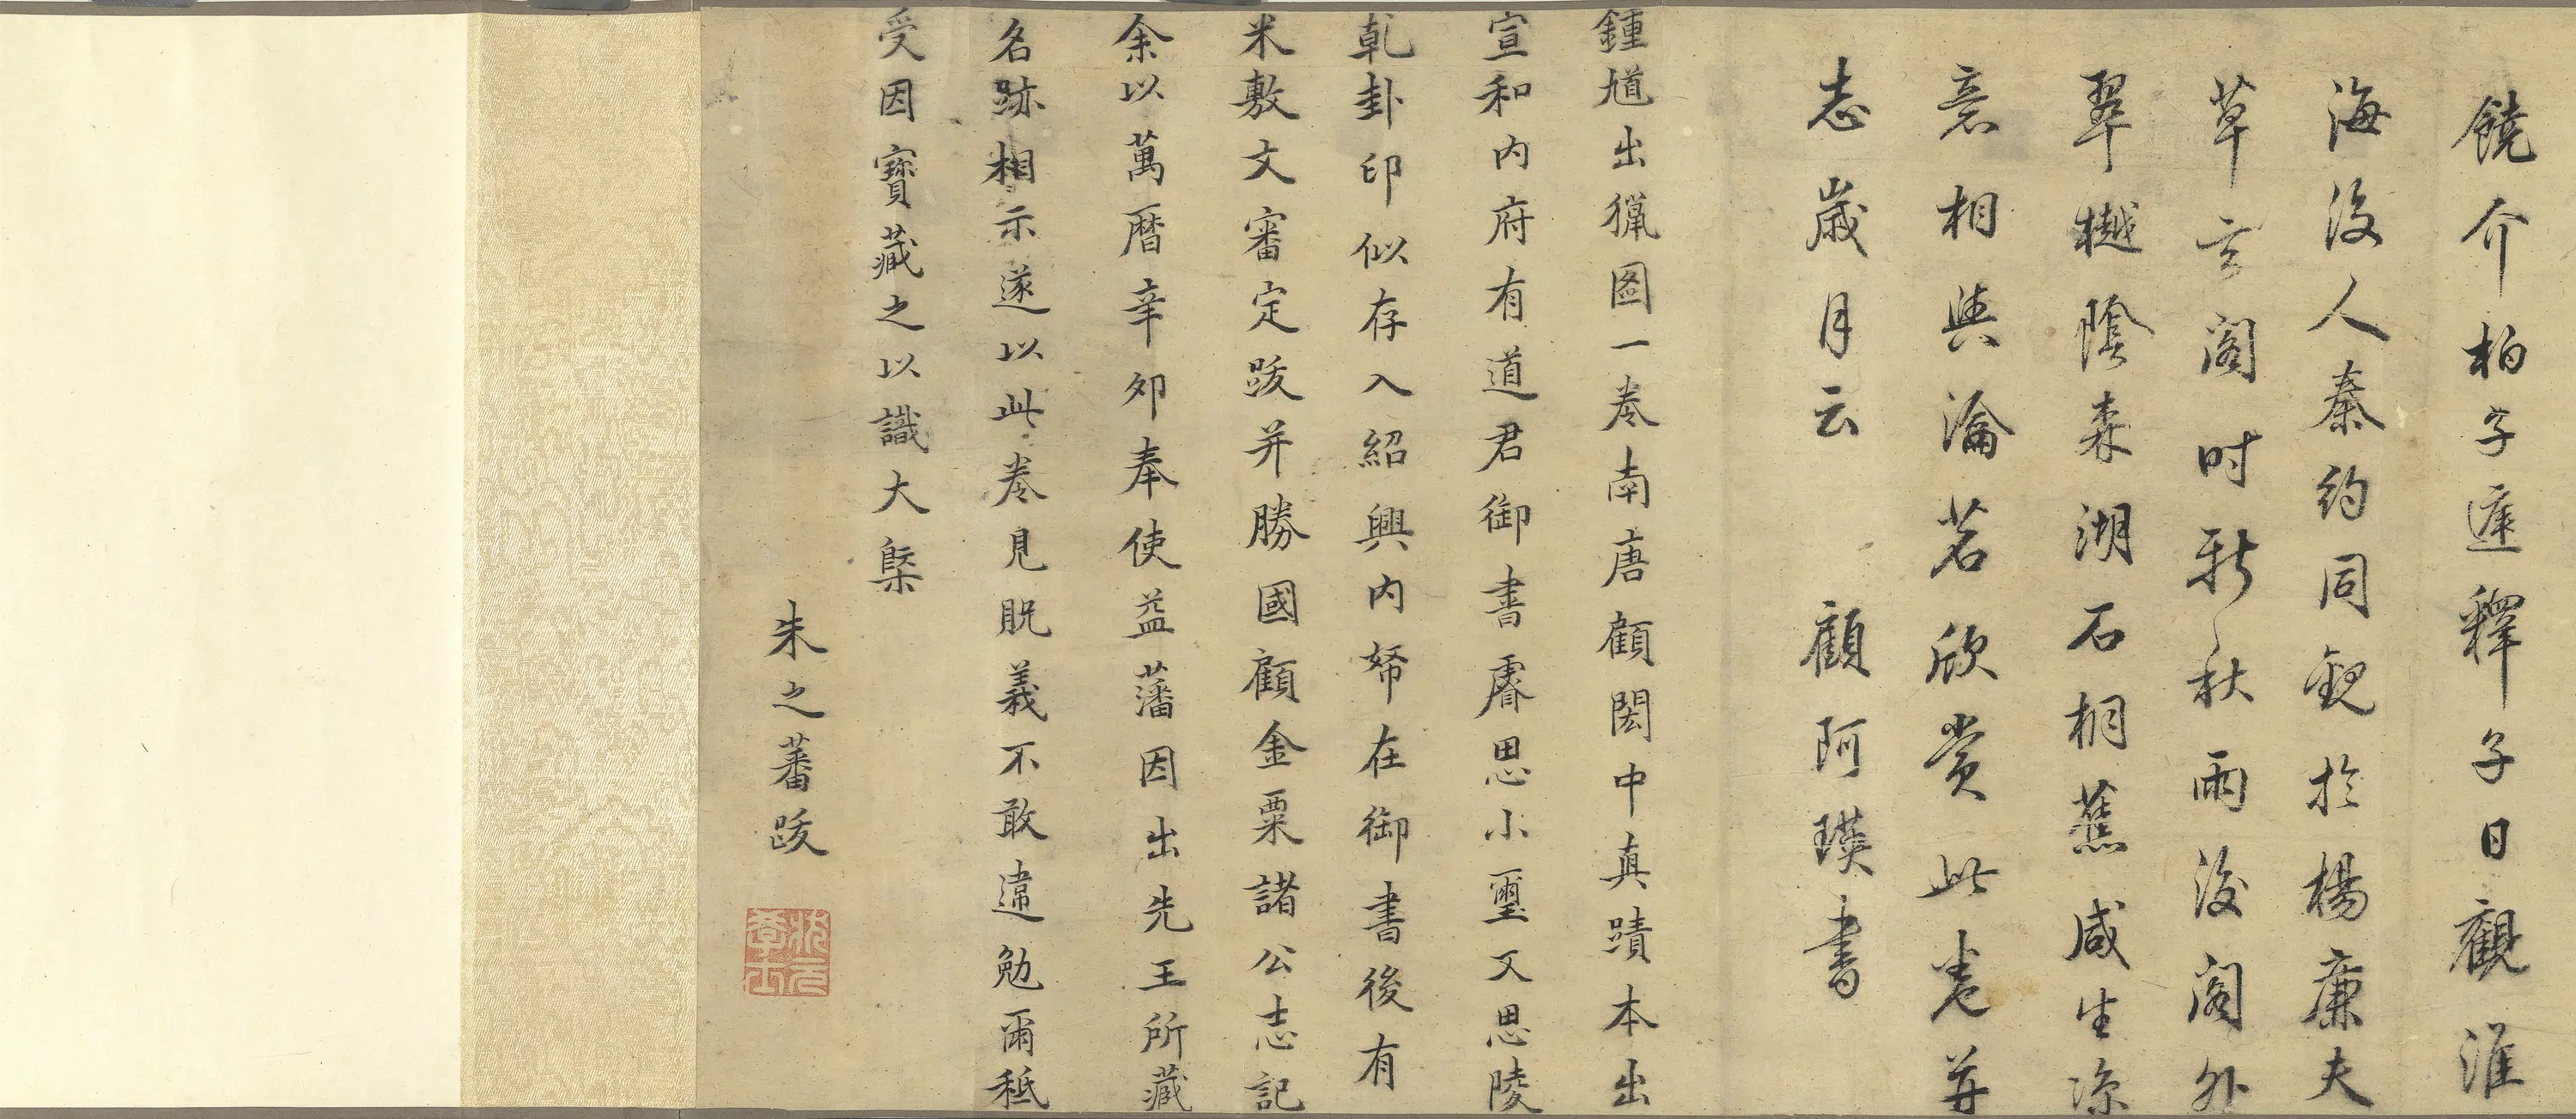 饒介柏子遅釋子日觀淮
海後人秦約同觀於楊廉夫
草玄閣時新秋雨後閣外
翠樾陰森湖石桐蕉咸生涼
意相與瀹茗欣賞此卷并
志歲月云 顧阿瑛書
鍾馗出獵圖一卷南唐顧閎中真蹟本出
宣和内府有道君御書睿思小璽又思陵
乾卦印似存入紹興内帑在御書後有
米敷文審定跋并勝國顧金粟諸公志記
余以萬曆辛卯奉使益藩因出先王所藏
名跡相示遂以此卷見貺義不敢違勉爾秪
受因寶藏之以識大槩
朱之蕃跋
狀元學士